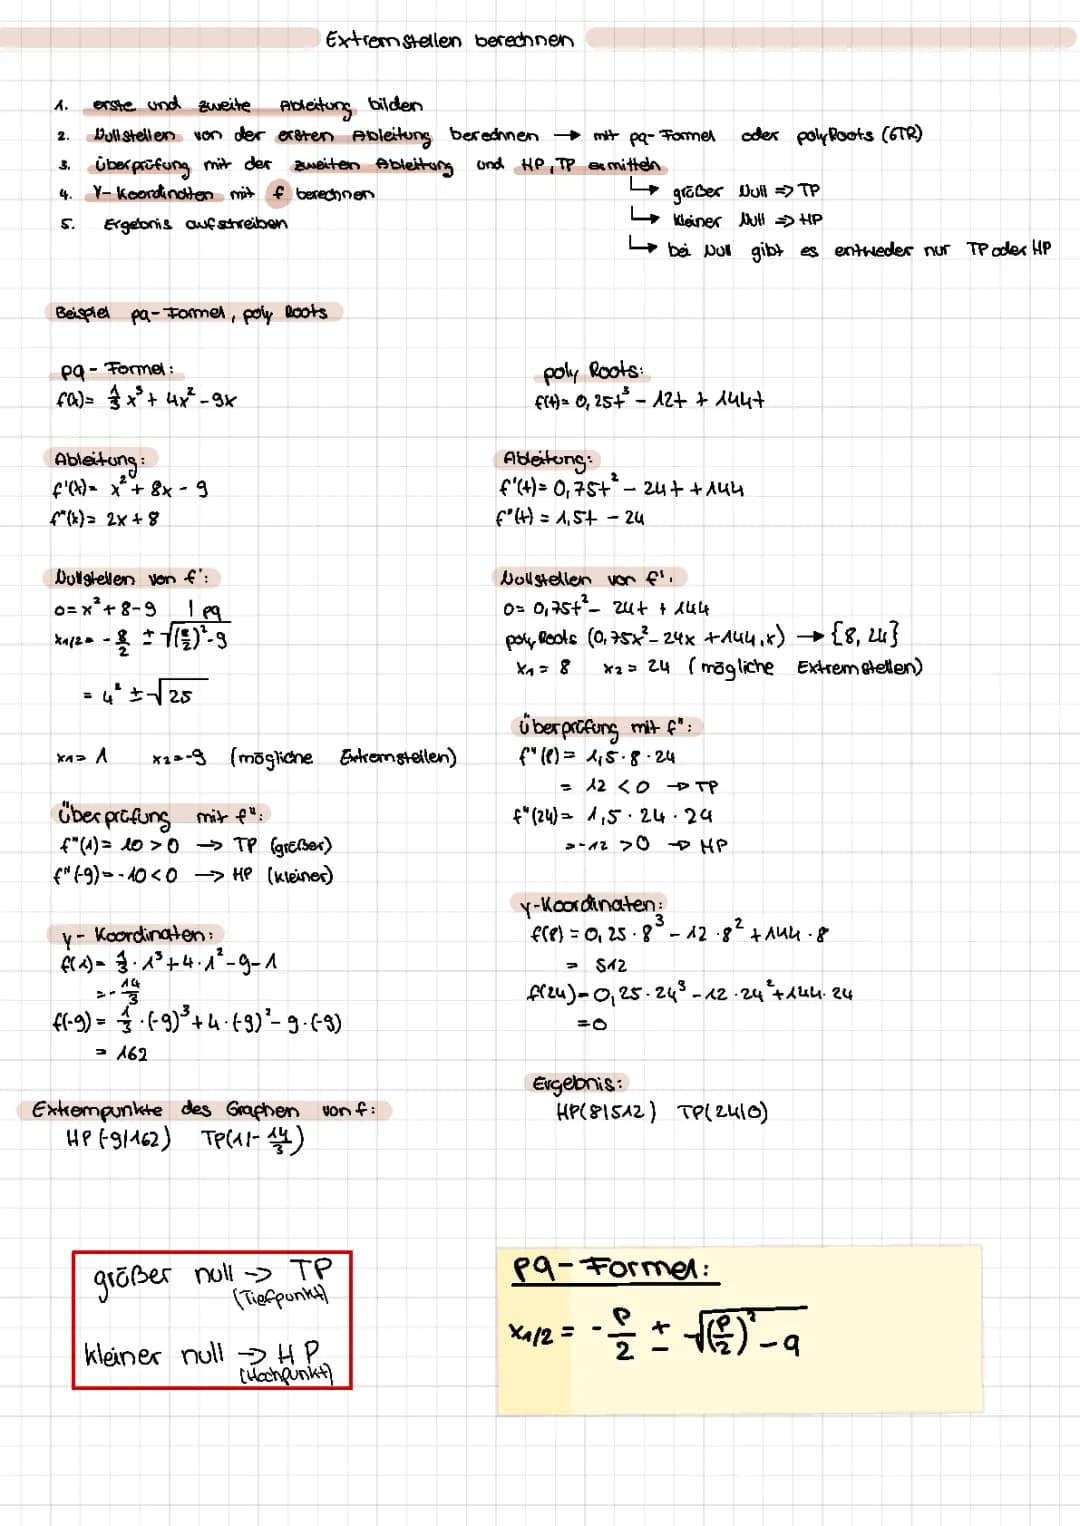 Extremstellen berechnen
1. erste und zweite Ableitung bilden
2. Nullstellen von der ersten Ableitung berechnen → mit pq-Formel oder polyRoots (GTR)
3. überprüfung mit der zweiten Ableitung und HP, TP ermitteln
↳ größer Null => TP
↳ kleiner Null => HP
↳ bei Null gibt es entweder nur TP oder HP
4. Y-Koordinaten mit f berechnen
5. Ergebnis aufstreiben
Beispiel pq-Formel, poly Roots
pq-Formel:
f(x)= 1/3 x³ + 4x² - 9x
Ableitung:
f'(x)= x² + 8x - 9
f"(x)= 2x + 8
Nullstellen von f':
0= x² + 8-9 | pq
x1/2= - 8/2 ± √(8/2)²-9
= 4² ± √25
x1= 1 x2=-9 (mögliche Extremstellen)
überprüfung mit f":
f"(1)= 10 > 0 → TP (größer)
f"(-9)=-10 < 0 → HP (kleiner)
y-Koordinaten:
f(1)= 1/3 · 1³ + 4 · 1² - 9 - 1
= - 14/3
f(-9) = 1/3 · (-9)³ + 4 · (-9)² - 9 · (-9)
= 162
Extrempunkte des Graphen von f:
HP (-9/162) TP(1/- 14/3)
poly Roots:
f(t)= 0,25t³ - 12t + 144t
Ableitung:
f'(t)= 0,75t² - 24t + 144
f"(t) = 1,5t - 24
Nollstellen von f'.
0= 0,75t² - 24t + 144
poly Roots (0,75x² - 24x + 144,x) → {8, 24}
x1 = 8 x2 = 24 (mögliche Extremstellen)
überprüfung mit f":
f"(8) = 1,5 · 8 · 24
= 12 < 0 → TP
f"(24) = 1,5 · 24 · 24
=-12 > 0 → HP
y-Koordinaten:
f(8) = 0,25 · 8³ - 12 · 8² + 144 · 8
= 512
f(24)=0,25 · 24³ - 12 · 24² + 144 · 24
=0
Ergebnis:
HP(8|512) TP(24|0)
größer null → TP
(Tiefpunkt)
kleiner null → HP
(Hochpunkt)
pq-Formel:
x1/2 = - p/2 ± √(p/2)² - q